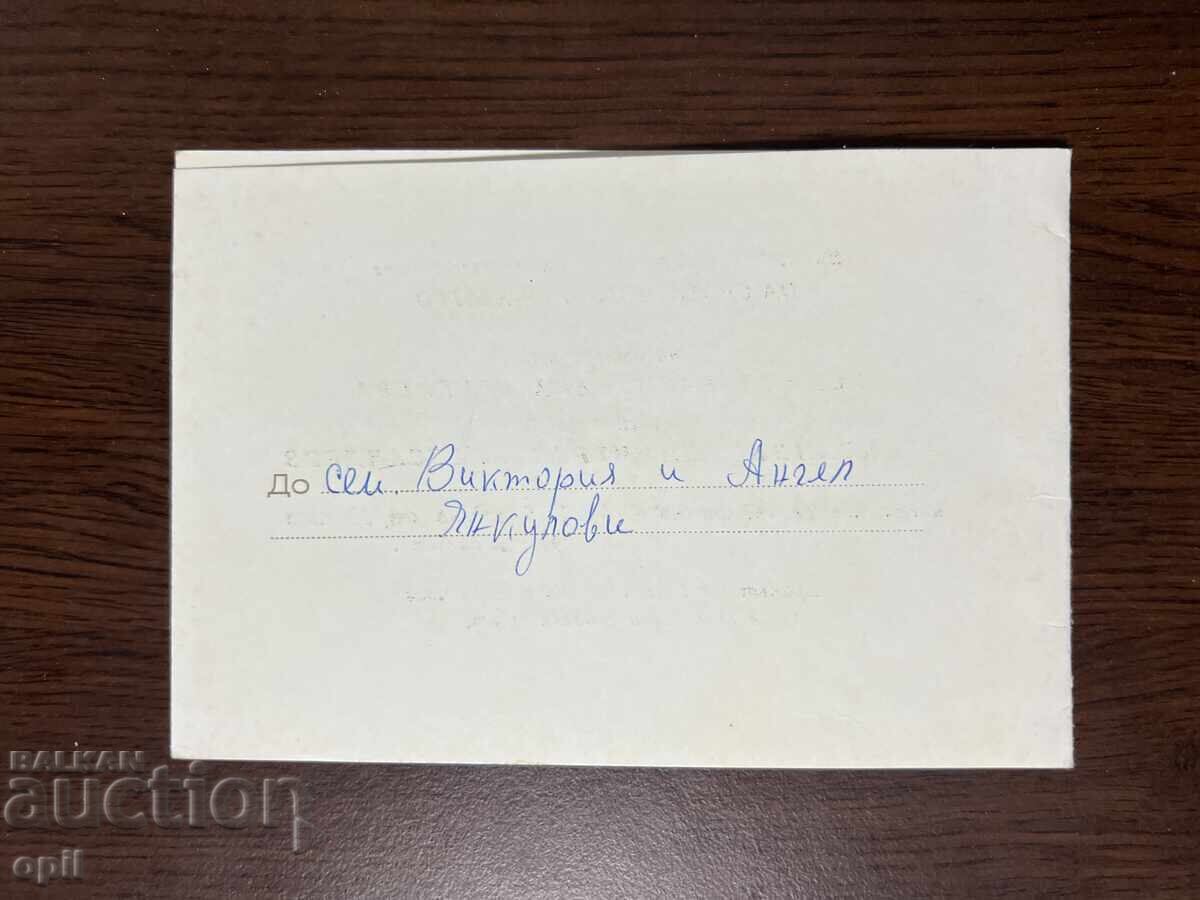 До сем. Виктория и Ангел
Янкулови
BALKAN
auction
opil